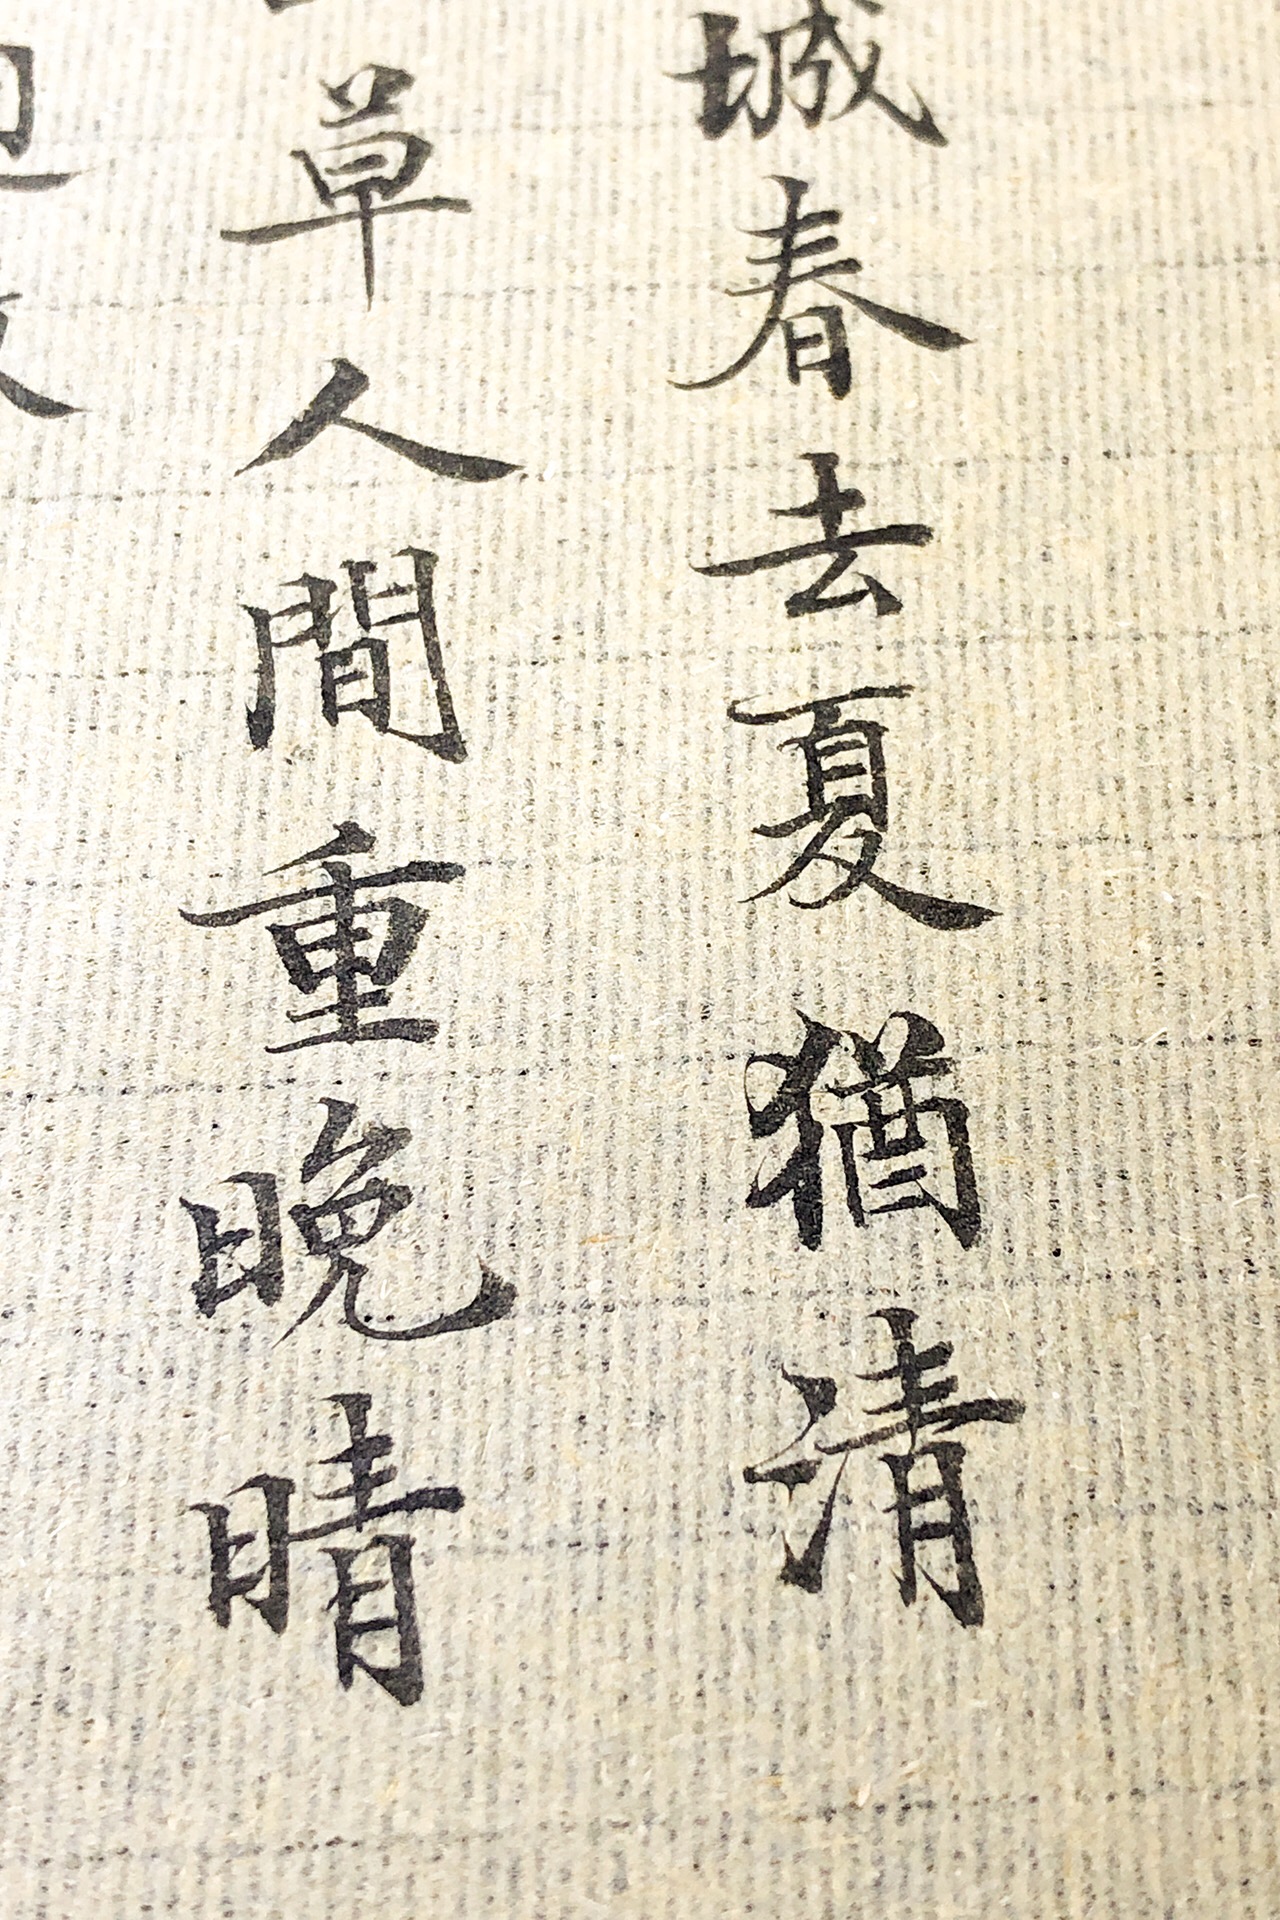 城春去夏猶清
草人間重晚晴